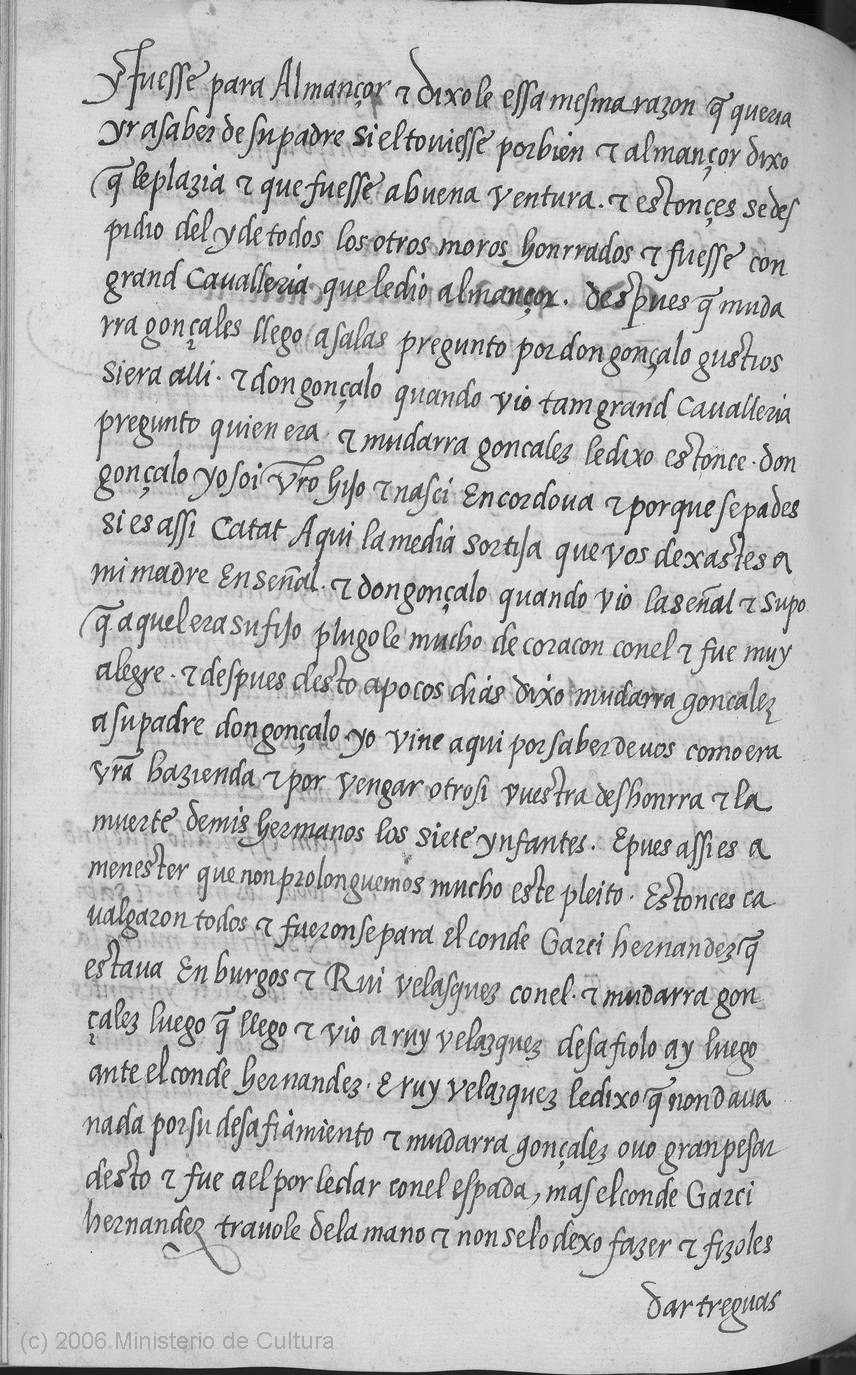 y fuesse para Almançor τ dixole essa mesma razon q̃ queria
yr a saber de su padre si el toviesse por bien τ almançor dixo
q̃ le plazia τ que fuesse a buena ventura. τ estonçes se des
pidio del y de todos los otros moros honrrados τ fuesse con
grand Cavalleria que le dio almançor. despues q̃ muda
rra gonçales llego a salas pregunto por don gonçalo gustios
si era alli. τ don gonçalo quando vio tam grand Cavalleria
pregunto quien era τ mudarra goncalez le dixo estonce. don
gonçalo yo soi vr̃o hijo τ nasci En cordova τ por que sepades
si es assi Catat Aqui la media sortija que vos dexastes a
mi madre En señal. τ don gonçalo quando vio la señal τ supo
q̃ aquel era su fijo plugole mucho de coracon con el τ fue muy
alegre. τ despues desto a pocos dias dixo mudarra goncalez
a su padre don gonçalo yo vine aqui por saber de uos como era
vr̃a hazienda τ por vengar otrosi vuestra deshonrra τ la
muerte de mis hermanos los siete ynfantes. E pues assi es a
menester que non prolonguemos mucho este pleito. Estonces ca
ualgaron todos τ fueronse para El conde Garci hernandez q̃
estaua En burgos τ Rui velasquez con el. τ mudarra gon
çalez luego q̃ llego τ vio a ruy velazquez desafiolo ay luego
ante el conde hernandez. E ruy velazquez le dixo q̃ non daua
nada por su desafiamiento τ mudarra gonçalez ouo gran pesar
desto τ fue a el por le dar con el espada, mas el conde Garci
hernandez trauole de la mano τ non se lo dexo fazer τ fizoles
dar treguas
(c) 2006 Ministerio de Cultura